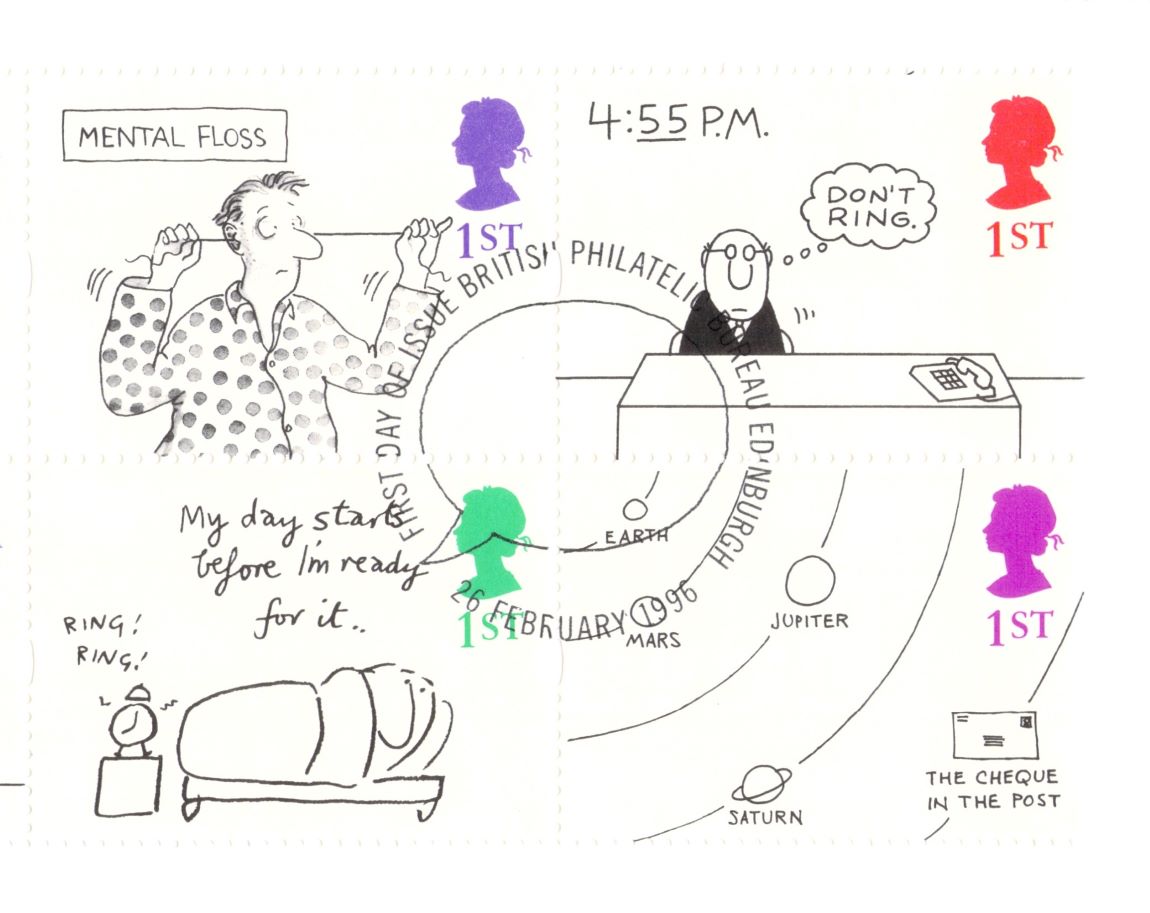 MENTAL FLOSS
1ST
4:55 P.M.
DON'T
RING.
1ST
FIRST DAY OF ISSUE BRITISH PHILATELIC BUREAU EDINBURGH
26 FEBRUARY 1996
My day starts
before I'm ready
for it..
1ST
RING!
RING!
EARTH
MARS
JUPITER
SATURN
1ST
THE CHEQUE
IN THE POST